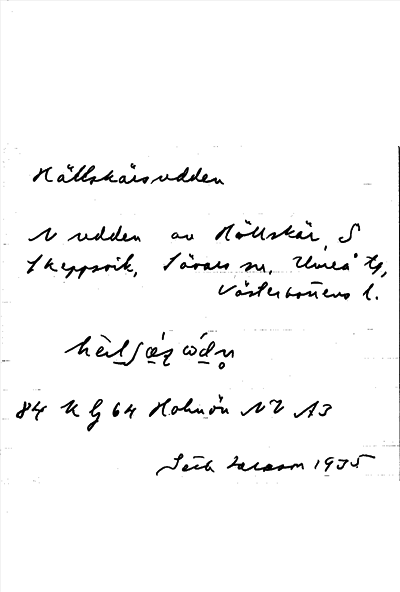 Hällskärsudden
N udden av Hällskär, S
Skeppsvik, Sävars sn, Umeå tg,
Västerbottens l.
84 K G 64 Holmön NV A3
Seth Larsson 1935